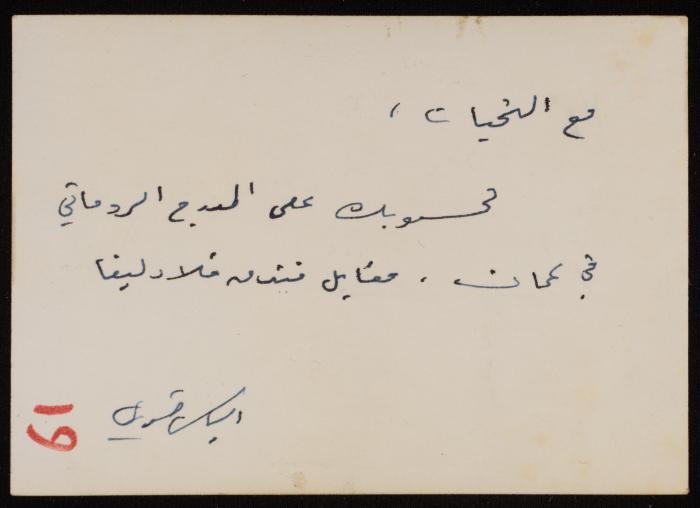 مع التحيات ،
محسوبك على المدرج الروماني
في عمان ، مقابل فندق فلادلفيا
الياس
19